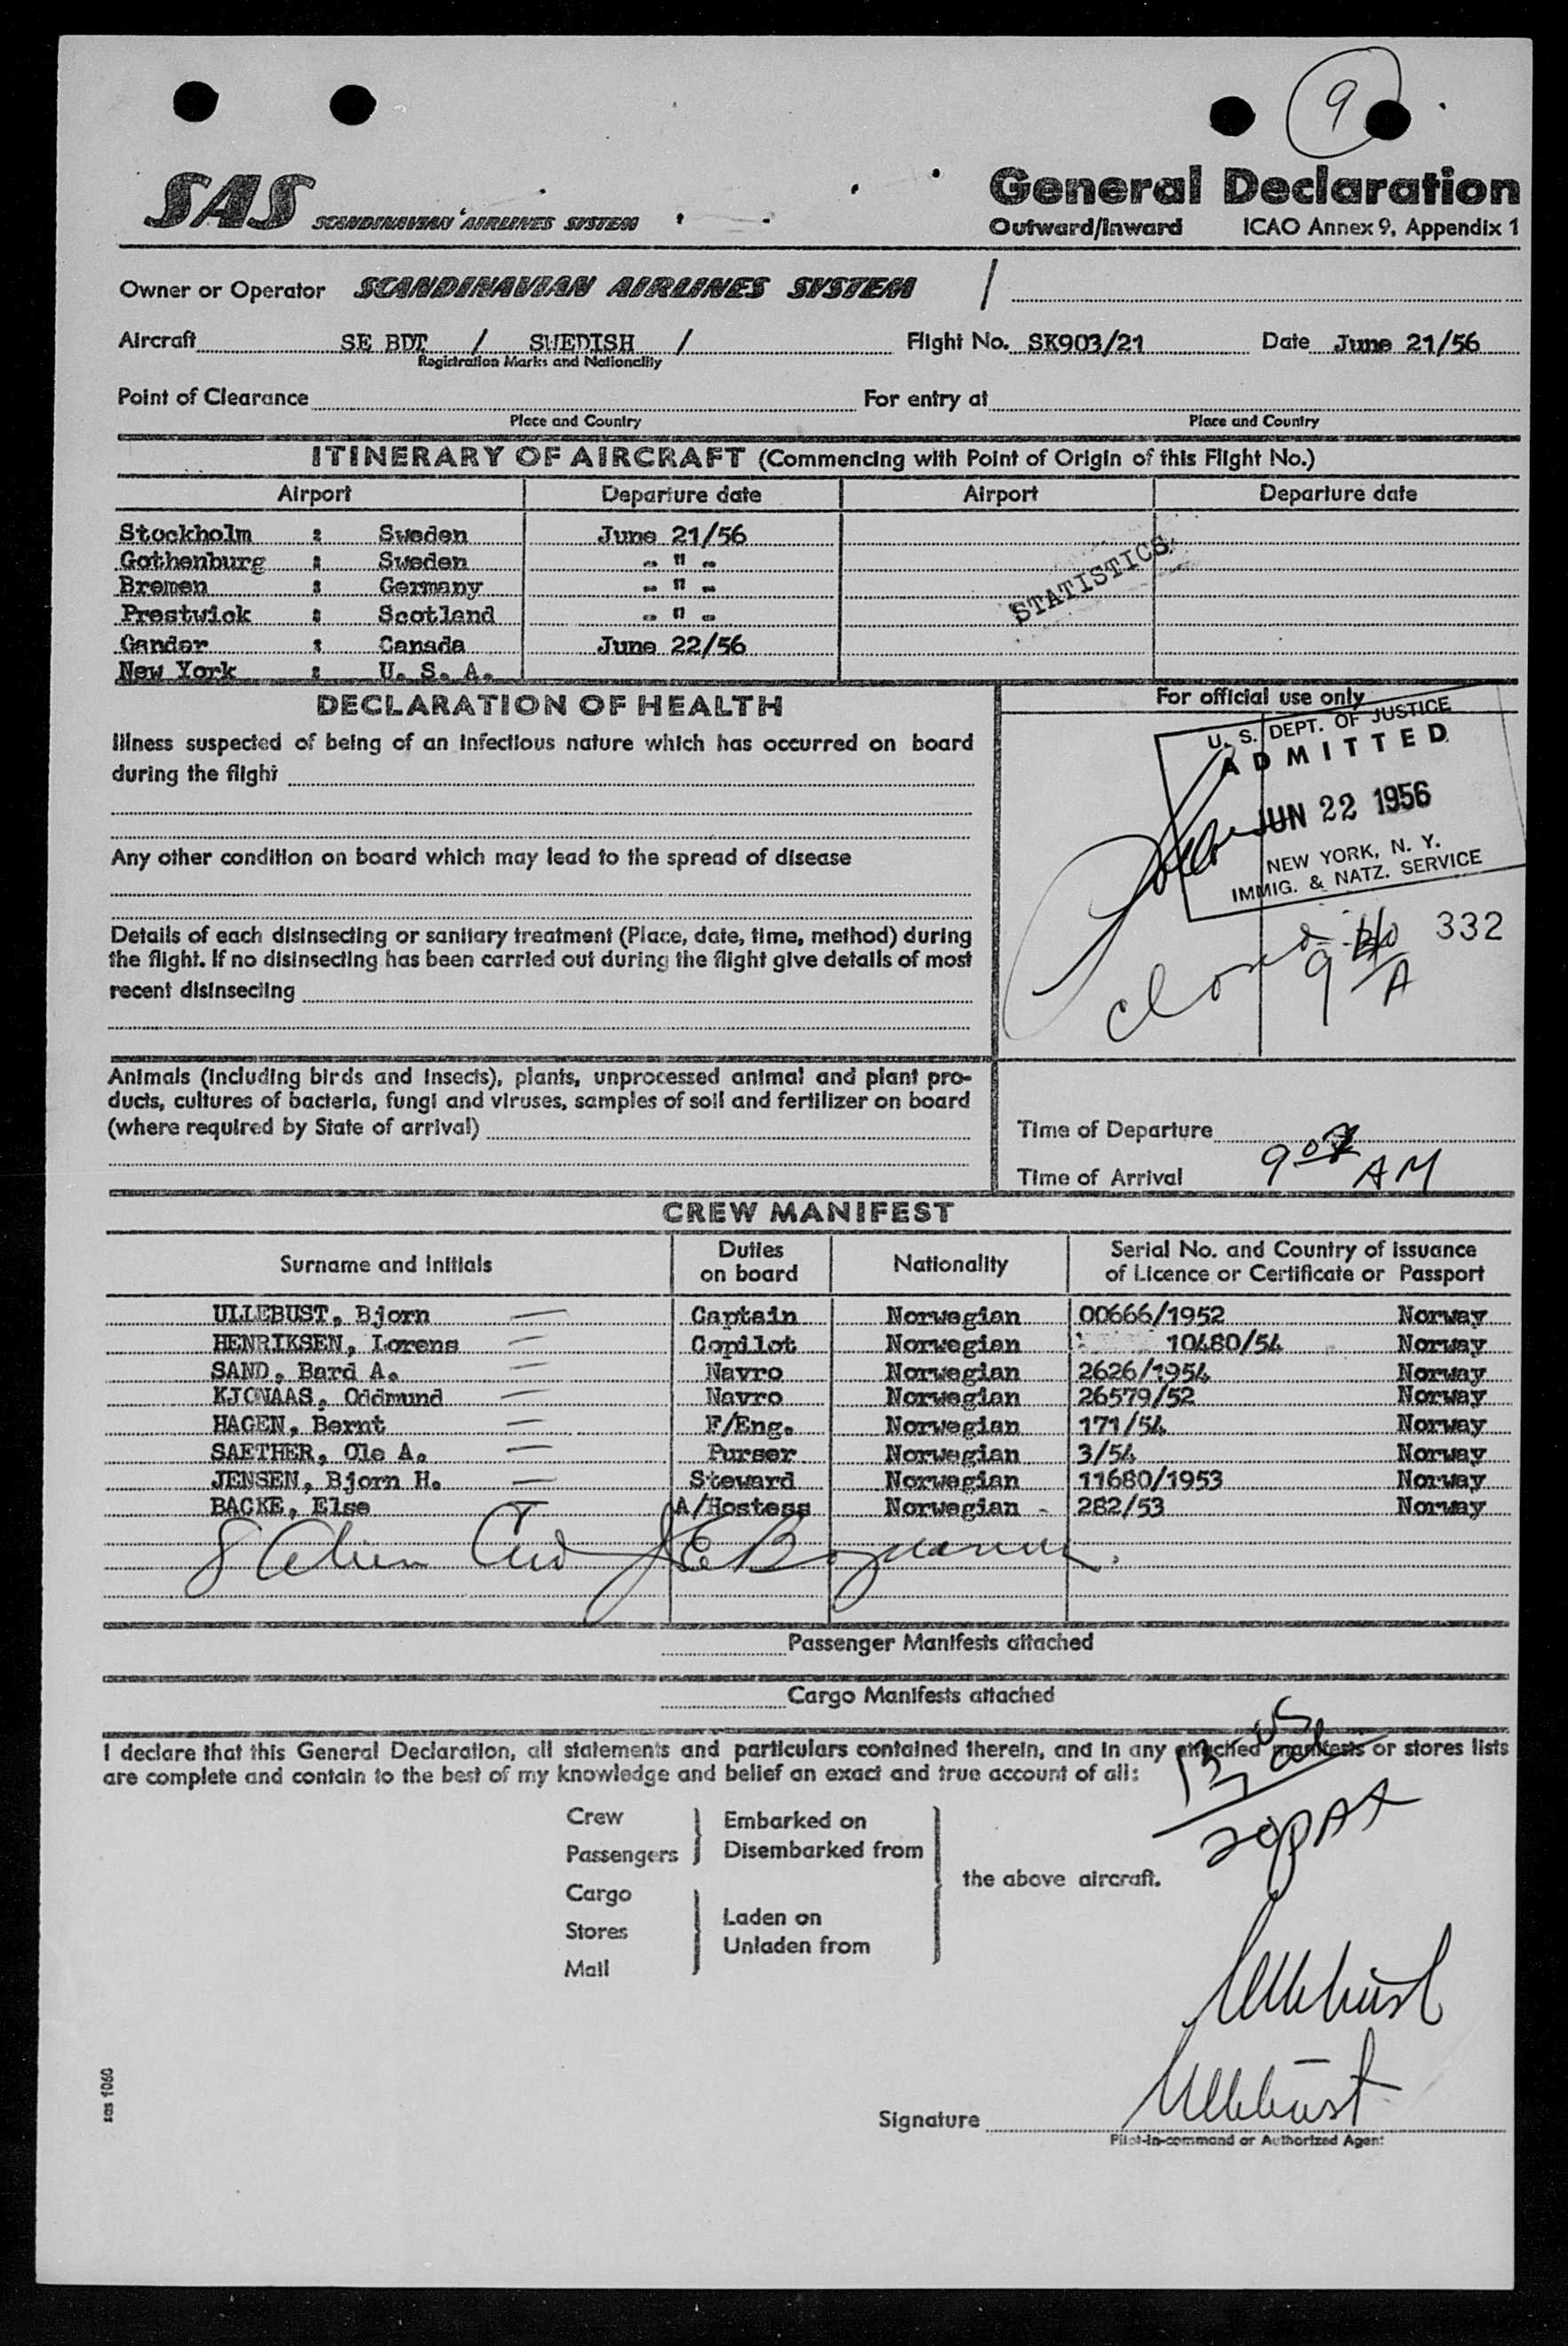 9
SAS SCANDINAVIAN AIRLINES SYSTEM
General Declaration
Outward/Inward ICAO Annex 9, Appendix 1
Owner or Operator SCANDINAVIAN AIRLINES SYSTEM /
Aircraft SE BDT / SWEDISH / Flight No. SK903/21 Date June 21/56
Registration Marks and Nationality
Point of Clearance For entry at
Place and Country Place and Country
ITINERARY OF AIRCRAFT (Commencing with Point of Origin of this Flight No.)
Airport Departure date Airport Departure date
Stockholm : Sweden June 21/56
Gothenburg : Sweden - " -
Bremen : Germany - " -
Prestwick : Scotland - " -
Gander : Canada June 22/56
New York : U. S. A.
STATISTICS
DECLARATION OF HEALTH
Illness suspected of being of an infectious nature which has occurred on board
during the flight
Any other condition on board which may lead to the spread of disease
Details of each disinsecting or sanitary treatment (Place, date, time, method) during
the flight. If no disinsecting has been carried out during the flight give details of most
recent disinsecting
For official use only
U. S. DEPT. OF JUSTICE
ADMITTED
JUN 22 1956
NEW YORK, N. Y.
IMMIG. & NATZ. SERVICE
332
Animals (including birds and insects), plants, unprocessed animal and plant pro-
ducts, cultures of bacteria, fungi and viruses, samples of soil and fertilizer on board
(where required by State of arrival)
Time of Departure
Time of Arrival 9 07 AM
CREW MANIFEST
Surname and Initials Duties on board Nationality Serial No. and Country of issuance of Licence or Certificate or Passport
ULLEBUST, Bjorn Captain Norwegian 00666/1952 Norway
HENRIKSEN, Lorens Copilot Norwegian 10480/54 Norway
SAND, Bard A. Navro Norwegian 2626/1954 Norway
KJONAAS, Oddmund Navro Norwegian 26579/52 Norway
HAGEN, Bernt F/Eng. Norwegian 171/54 Norway
SAETHER, Ole A. Purser Norwegian 3/54 Norway
JENSEN, Bjorn H. Steward Norwegian 11680/1953 Norway
BACKE, Else A/Hostess Norwegian - 282/53 Norway
8 Alien
Passenger Manifests attached
Cargo Manifests attached
I declare that this General Declaration, all statements and particulars contained therein, and in any attached manifests or stores lists
are complete and contain to the best of my knowledge and belief an exact and true account of all:
Crew
Passengers
Embarked on
Disembarked from
Cargo
Stores
Mail
Laden on
Unladen from
the above aircraft.
Ullebust
Ullebust
Signature
Pilot-in-command or Authorized Agent
sas 1060